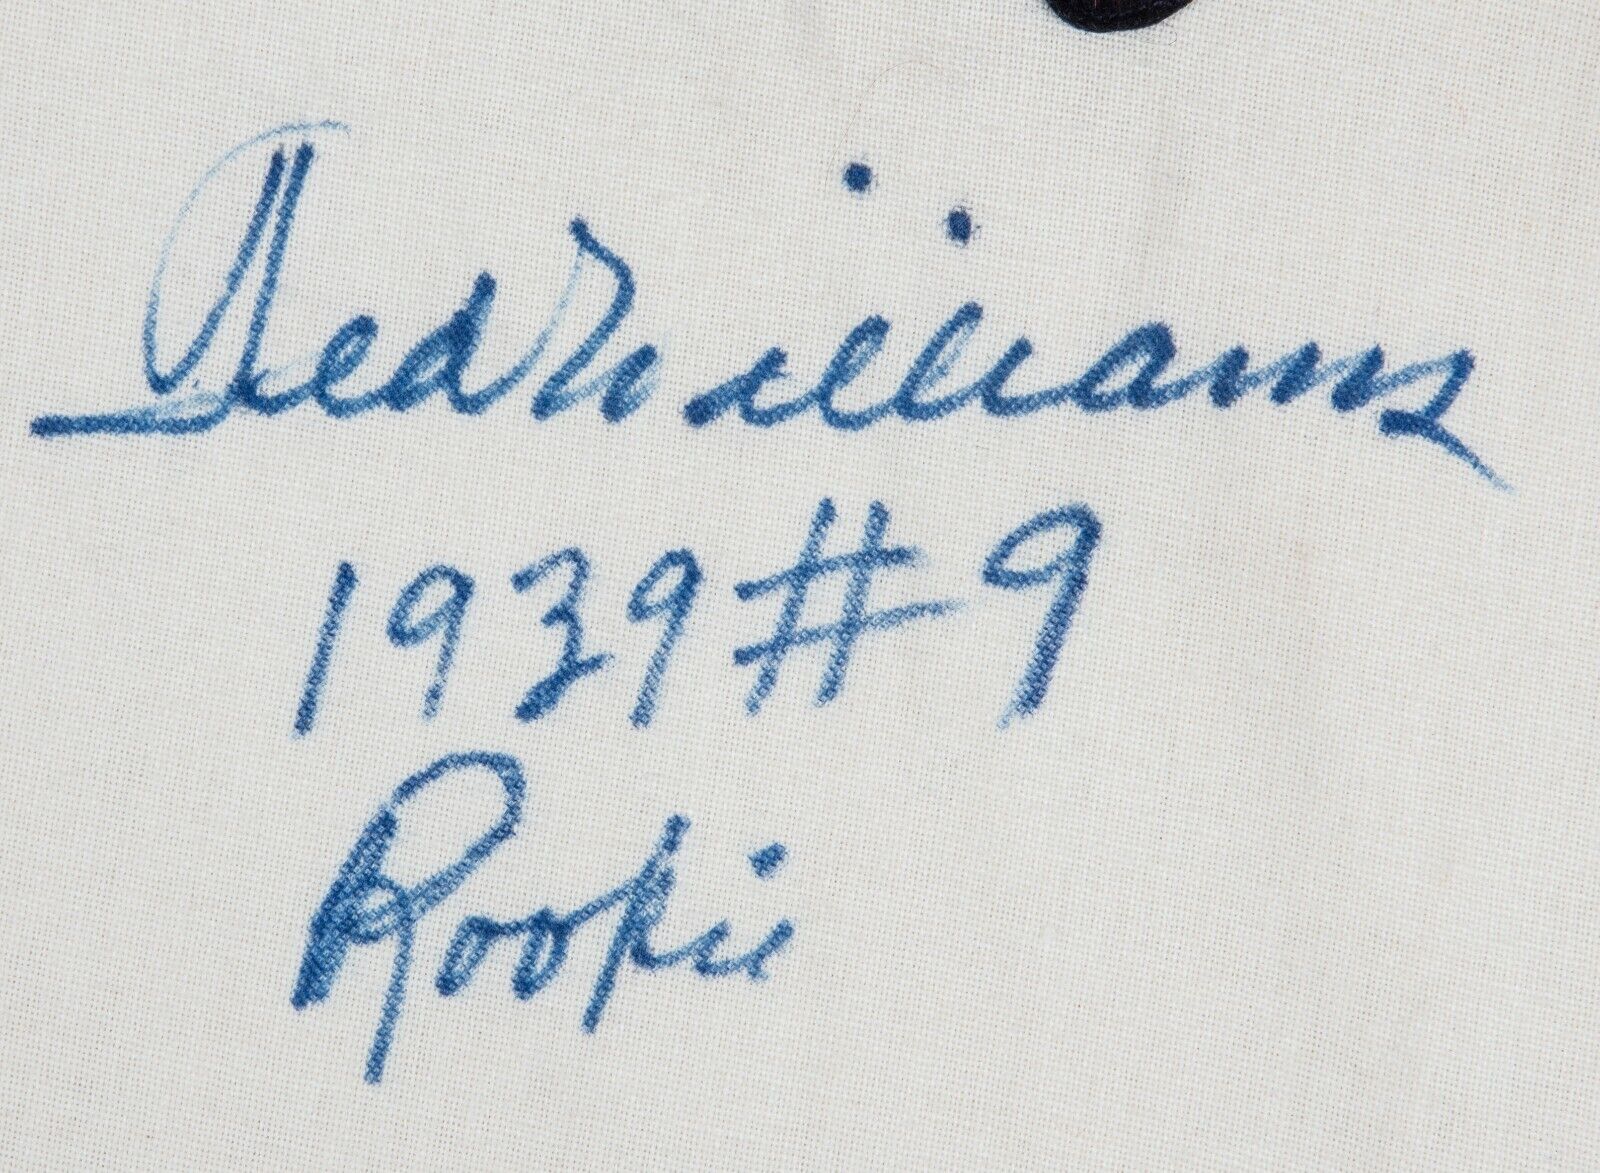 Ted Williams
1939 #9
Rookie